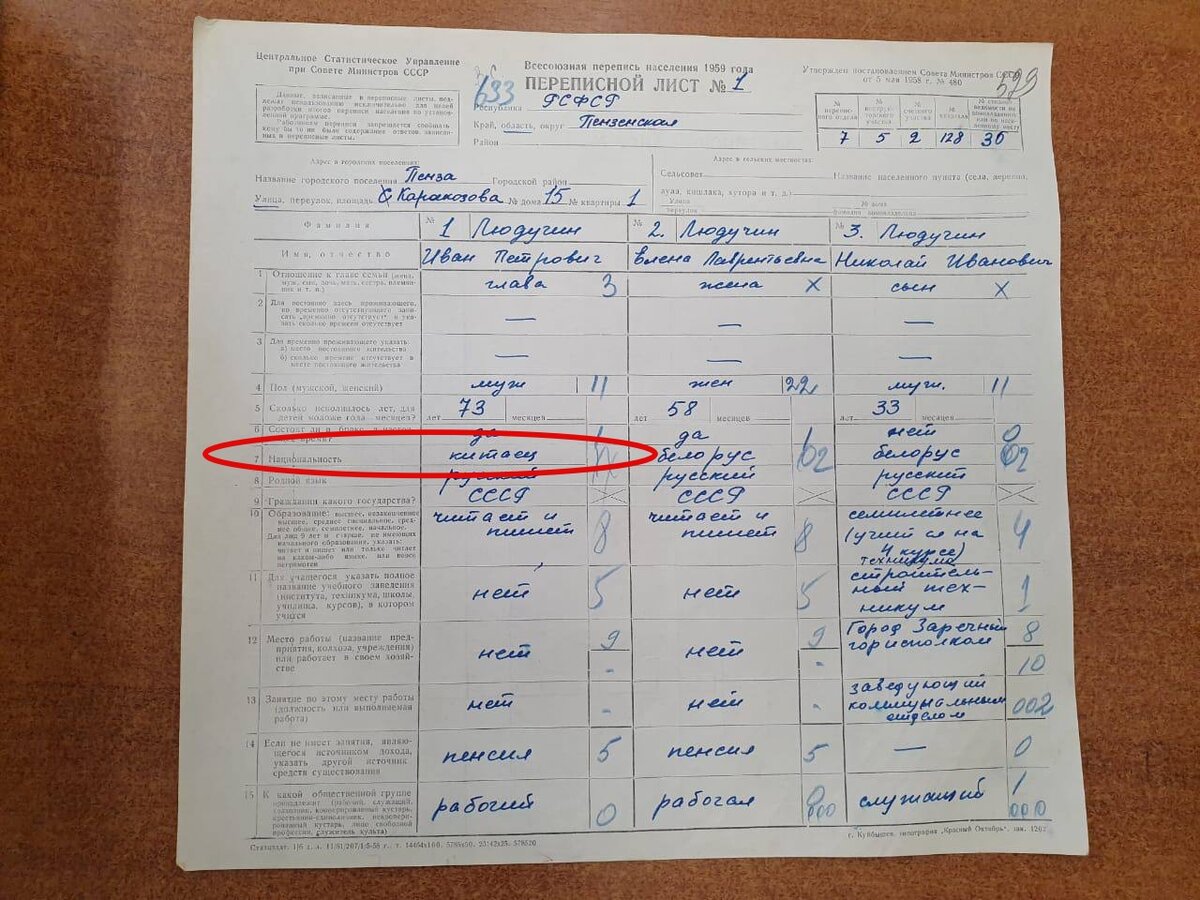 Центральное Статистическое Управление
при Совете Министров СССР
Всесоюзная перепись населения 1959 года
ПЕРЕПИСНОЙ ЛИСТ № 1
Утвержден постановлением Совета Министров СССР
от 5 мая 1958 г. № 480
633
579
Республика РСФСР
Край, область, округ Пензенская
Район
7 5 2 128 36
Адрес в городских поселениях:
Название городского поселения Пенза Городской район
Улица, переулок, площадь Каракозова № дома 15 № квартиры 1
Адрес в сельских местностях:
Сельсовет Название населенного пункта (села, деревни,
аула, кишлака, хутора и т. д.)
Улица
переулок
№ дома
фамилия домовладельца
Фамилия № 1 Людучин № 2. Людучин № 3. Людучин
Имя, отчество Иван Петрович Елена Лаврентьевна Николай Иванович
1 Отношение к главе семьи (жена, глава 3 жена X сын X
муж, сын, дочь, мать, сестра, племян-
ник и т. п.)
2 Для постоянно здесь проживающего, — — —
но временно отсутствующего запи-
сать „временно отсутствует" и ука-
зать сколько времени отсутствует
3 Для временно проживающего указать — — —
а) место постоянного жительства
б) сколько времени отсутствует в
месте постоянного жительства
4 Пол (мужской, женский) муж 11 жен 22 муж. 11
5 Сколько исполнилось лет, для лет 73 месяцев лет 58 месяцев лет 33 месяцев
детей моложе года месяцев?
6 Состоит ли в браке в настоя- да 1 да 1 нет 0
щее время?
7 Национальность китаец белорус 02 белорус 02
8 Родной язык русский русский русский
9 Гражданин какого государства? СССР СССР СССР
10 Образование: высшее, незаконченное читает и пишет 8 читает и пишет 8 семилетнее 4
высшее, среднее специальное, сред-
нее общее, семилетнее, начальное.
(учится на
4 курсе)
техникума
Для лиц 9 лет и старше, не имеющих
начального образования, указать:
читает и пишет или только читает
на каком-либо языке, или вовсе
неграмотен
11 Для учащегося указать полное нет 5 нет 5 строитель- 1
название учебного заведения ный тех-
(института, техникума, школы, никум
училища, курсов), в котором
учится
12 Место работы (название пред- нет 9 нет 9 Город Заречный 8
приятия, колхоза, учреждения) горисполком
или работает в своем хозяй- - - 10
стве
13 Занятие по этому месту работы нет - нет - заведующий 002
(должность или выполняемая коммунальным
работа) отделом
14 Если не имеет занятия, являю- пенсия 5 пенсия 5 — 0
щегося источником дохода,
указать другой источник
средств существования
15 К какой общественной группе рабочий 0 рабочая 000 служащий 1 000
принадлежит (рабочий, служащий,
колхозник, кооперированный кустарь,
крестьянин-единоличник, некоопери-
рованный кустарь, лицо свободной
профессии, служитель культа)
г. Куйбышев, типография „Красный Октябрь", зак. 1202